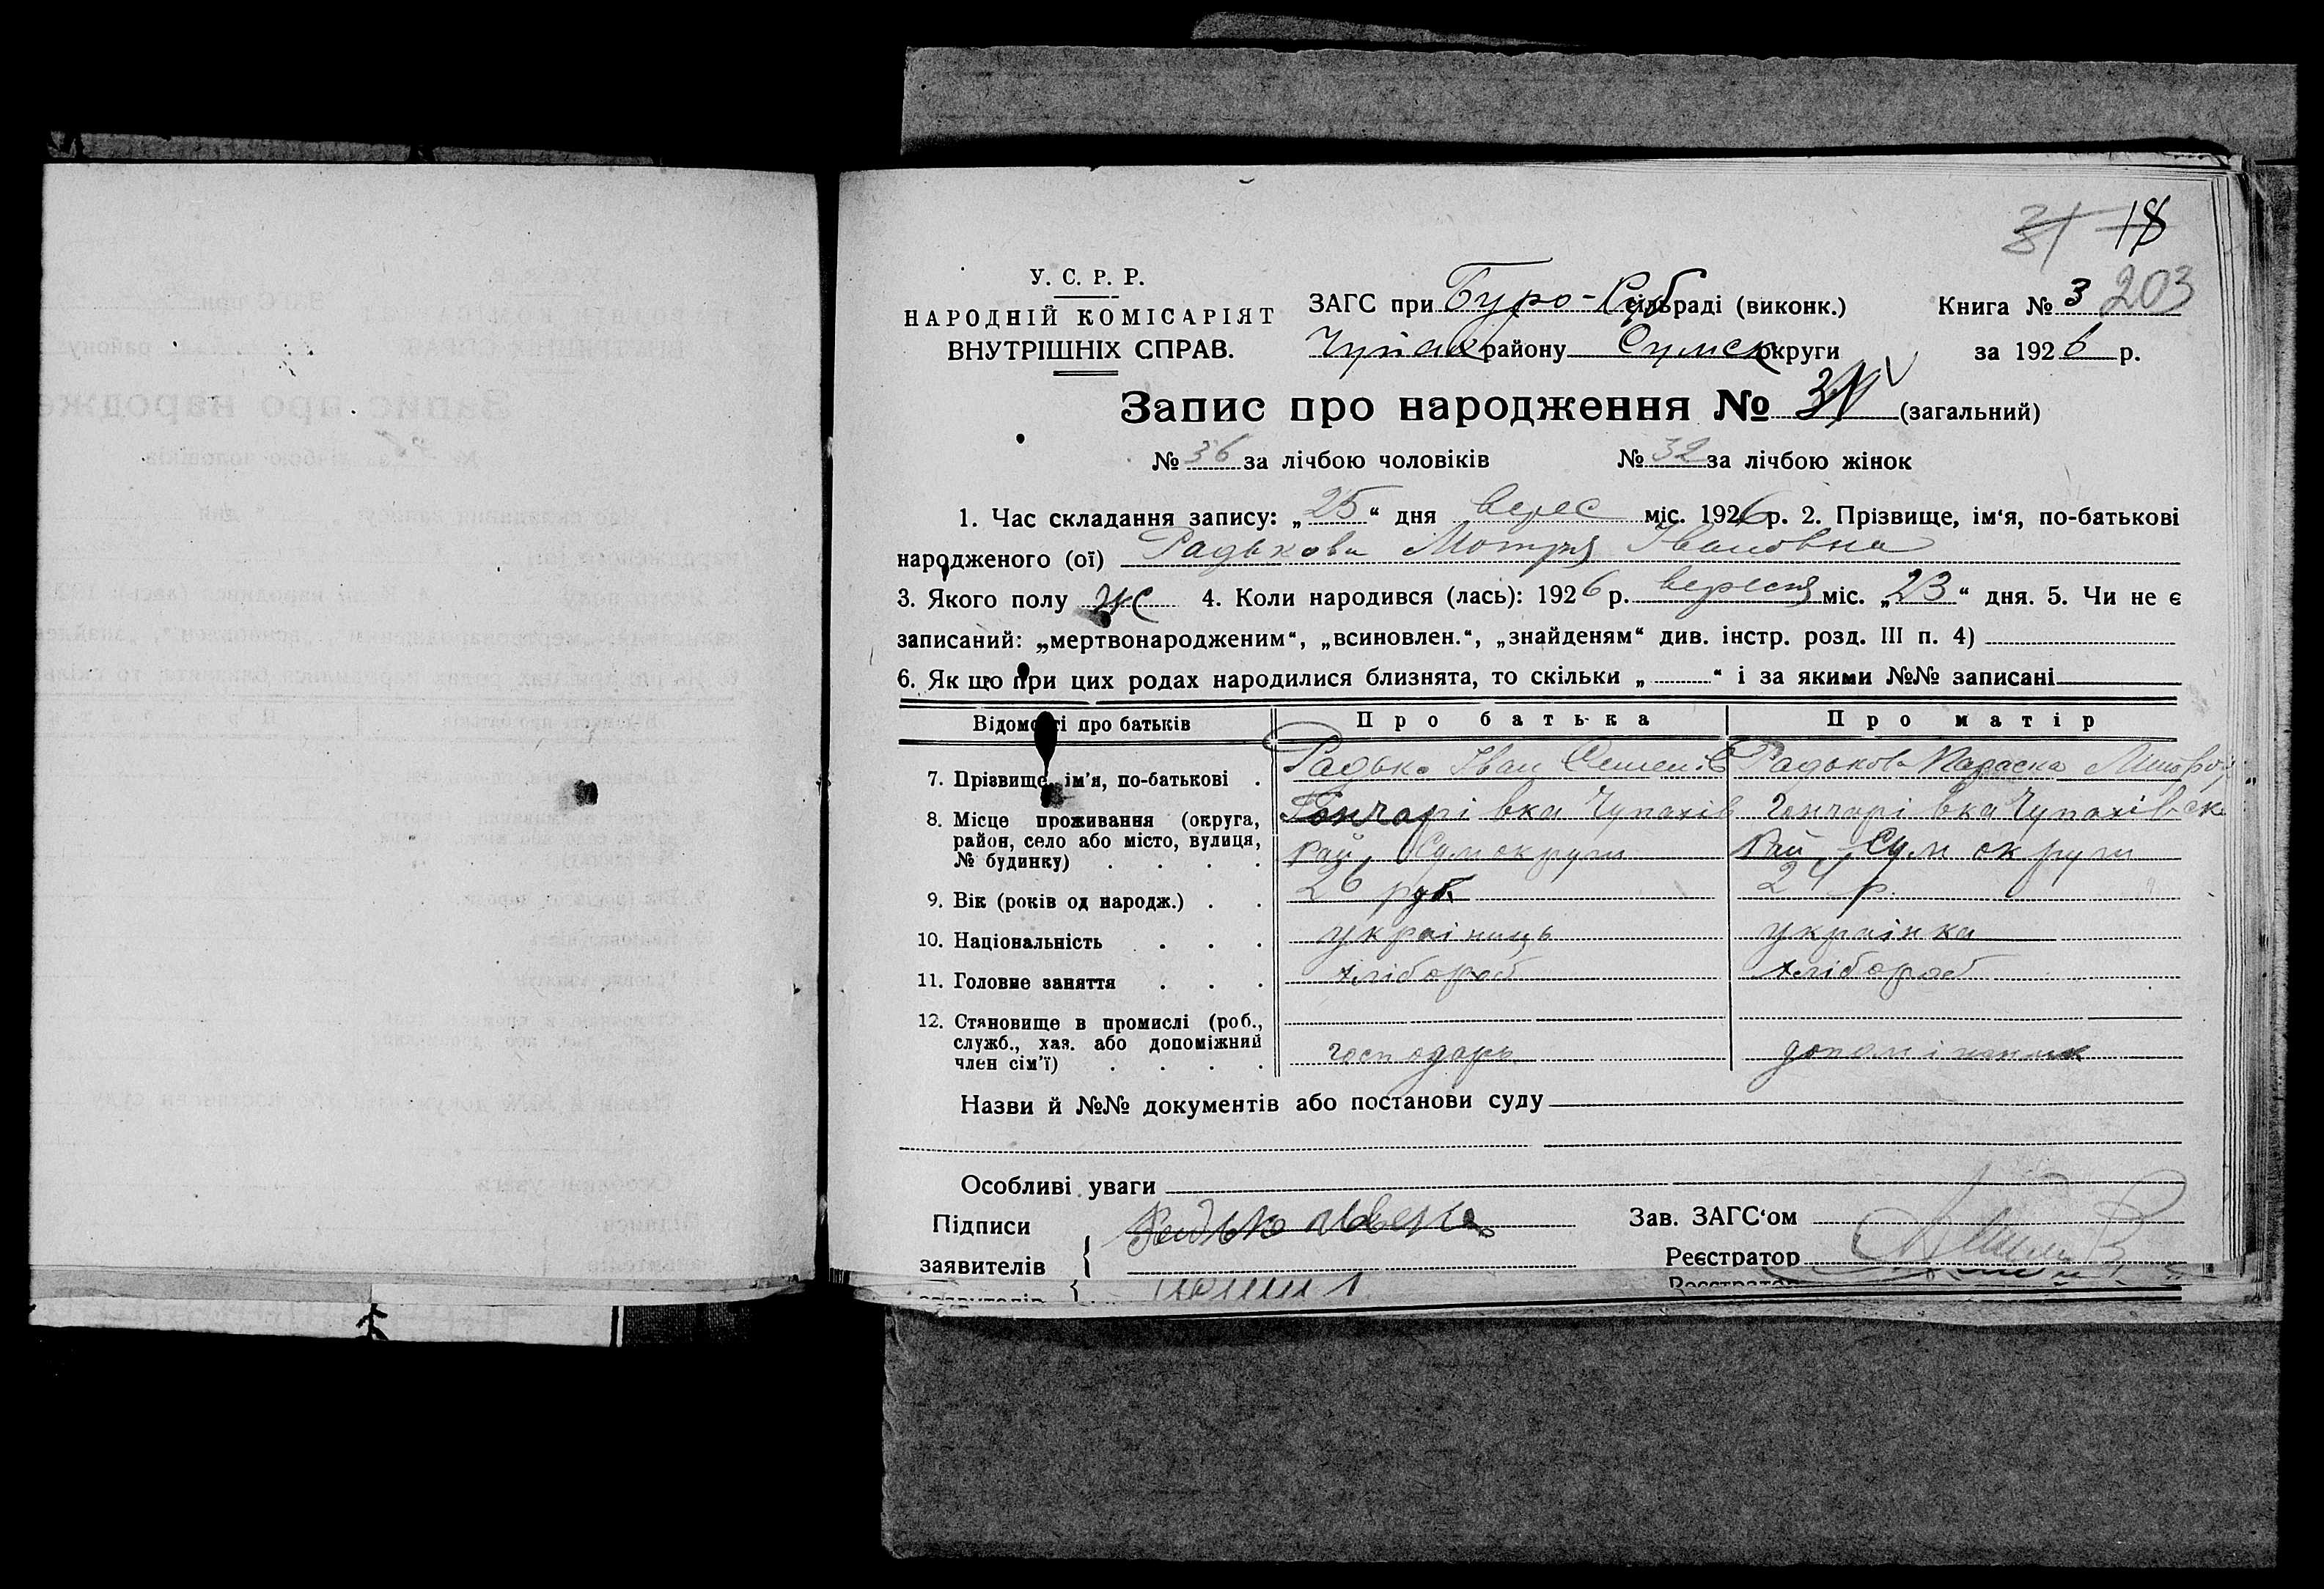 18
203
У. С. Р. Р.
НАРОДНІЙ КОМІСАРІЯТ
ВНУТРІШНІХ СПРАВ.
ЗАГС при Буро-Руб сільраді (виконк.)
Чупах району Сумск округи
Книга № 3
за 1926 р.
Запис про народження № (загальний)
№ 36 за лічбою чоловіків № 32 за лічбою жінок
1. Час складання запису: „25“ дня верес міс. 1926 р. 2. Прізвище, ім‘я, по-батькові
народженого (ої) Радькова Мотря Івановна
3. Якого полу Ж 4. Коли народився (лась): 1926 р. вересня міс. „23“ дня. 5. Чи не є
записаний: „мертвонародженим“, „всиновлен.“, „знайденям“ див. інстр. розд. III п. 4)
6. Як що при цих родах народилися близнята, то скільки „ “ і за якими №№ записані
Відомості про батьків Про батька Про матір
7. Прізвище, ім'я, по-батькові . Радько Іван Семенів Радькова Параска
8. Місце проживання (округа, Гончарівка Чупахів Гончарівка Чупахівск
район, село або місто, вулиця, Рай, Сум округи Рай, Сум округи
№ будинку) . . . .
9. Вік (років од народж.) . . 26 24 р.
10. Національність . . . україниць українка
11. Головне заняття . . . хлібороб хлібороб
12. Становище в промислі (роб.,
служб., хаз. або допоміжний господарь
член сім'ї) . . . .
Назви й №№ документів або постанови суду
Особливі уваги
Підписи Радько
заявителів {
Зав. ЗАГС‘ом
Реєстратор
заявителів {
Реєстратор